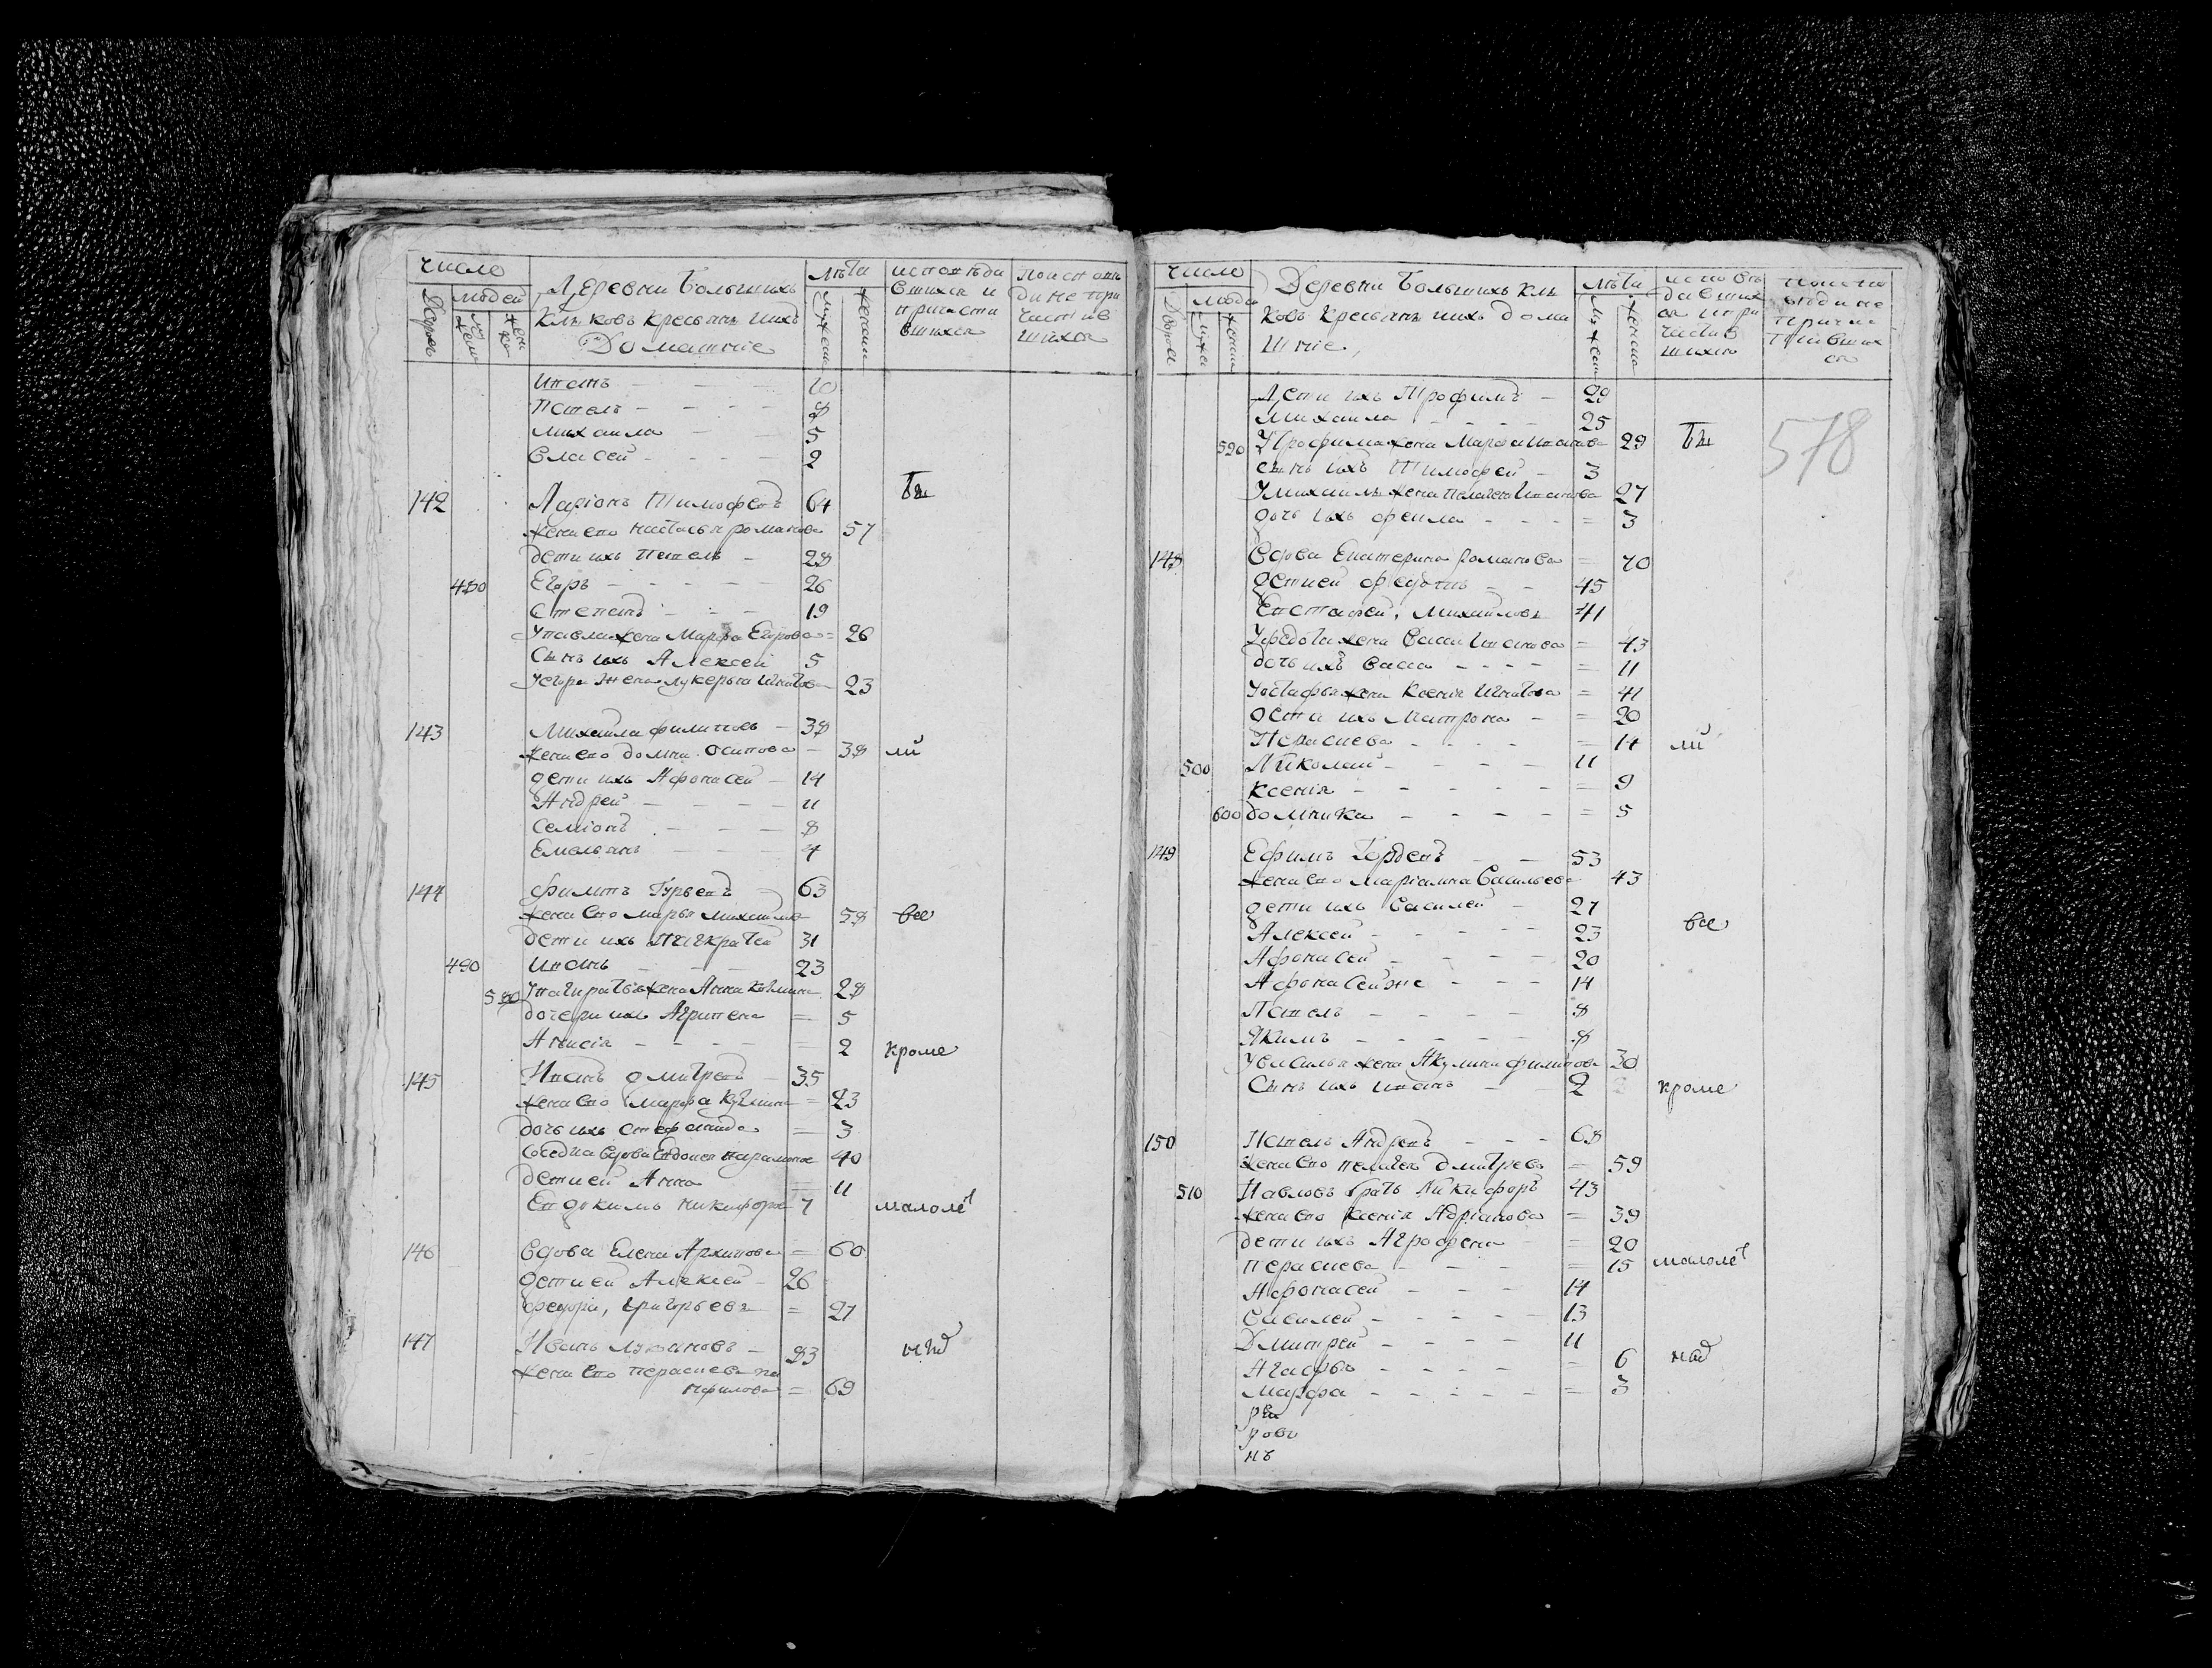 число
Деревни Большихъ
лѣта
исповѣда
вшихся и
причасти
вшихся
людей
Клѣковъ крестьянъ ихъ
Домашніе
Иванъ - - - 10
Павелъ - - - 8
Михаила - - 5
Власей - - - 2
142 Ларіонъ Тимофеевъ 64 бы
жена его Наталья Романова 57
дети ихъ Павелъ - 28
480 Егоръ - - - - 26
Степанъ - - - 19
У Павла жена Марфа Егорова = 26
Сынъ ихъ Алексей 5
У Егора жена Лукерья Игнатова 23
143 Михаила Филиповъ - 38
жена его Домна Осипова - 38 ли
дети ихъ Афонасей - 14
Андрей - - - - 11
Семіонъ - - - 8
Емельянъ - - - 4
144 Филипъ Гурьевъ - 63
жена его Марья Михайлова 58 все
дети ихъ Панкратей 31
490 Иванъ - - - 23
580 жена Анна Козмина 28
дочери ихъ Агрипена = 5
Анисія - - - - = 2 кроме
145 Иванъ Дмитревъ - 35
жена его Марфа Кузмина = 23
дочь ихъ Стефанида = 3
Соседка вдова Евдокея Парамонова 40
дети ей Анна = 11
Евдокимъ Никифоровъ 7 малолет
146 Вдова Елена Архипова = 60
дети ей Алексей - 26
Федора, Григорьевы = 27
147 Иванъ Лукьяновъ - 83
жена его Перасиева Па
нфилова = 69
число
Деревни Большихъ Клѣ
лѣта
ковъ крестьянъ ихъ дома
шніе,
дети ихъ Трофимъ - 29
Михаила - - - - 25
590 У Трофима жена Марфа Иванова 29 бы
сынъ ихъ Тимофей - 3
У Михаилы жена Пелагея Иванова 27
дочь ихъ Фекла - - - = 3
578
148 Вдова Екатерина Романова = 70
дети ей Федотъ - - 45
Евстафей, Михайловы 41
У Федота жена Васса Иванова = 43
дочь ихъ Васса - - - - = 11
У Остафья жена Ксенія Игнатова = 41
дети ихъ Матрона - = 20
Перасиева - - - - = 14 ли
500 Николай - - - - 11
Ксенія - - - - - = 9
600 Домника - - - - = 5
149 Ефимъ Гордеевъ - - 53
жена его Маріамна Васильева 43
дети ихъ Василей - 27
Алексей - - - - - 23 все
Афонасей - - - - 20
Афонасей же - - - 14
Павелъ - - - - - 8
Якимъ - - - - - 8
У Василья жена Акулина Филипова 30
Сынъ ихъ Иванъ - 2 кроме
150 Павелъ Андреевъ - - - 68
жена его Пелагея Дмитрева = 59
510 Павловъ братъ Никифоръ 43
жена его Ксенія Адріанова = 39
дети ихъ Аграфена - = 20
Перасиева - - - - = 15 малолет
Афонасей - - - - 14
Василей - - - - - 13
Дмитрей - - - - 11
Агафья - - - - = 6
Марфа - - - - - = 3
ровъ
нъ